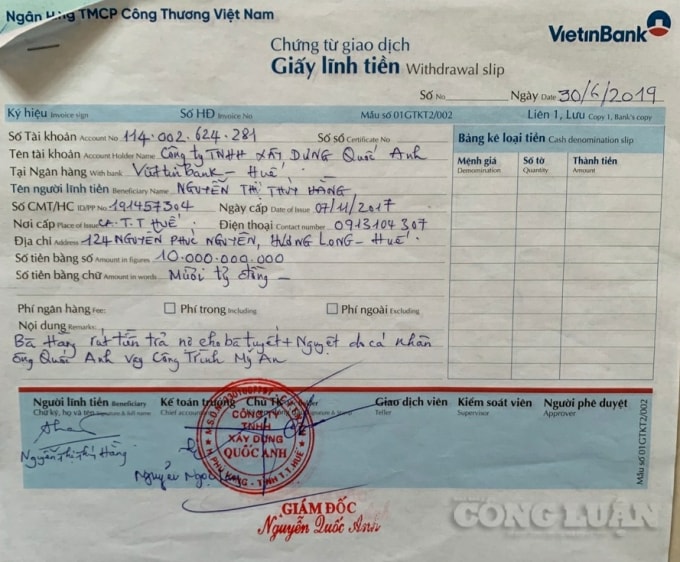 Ngân Hàng TMCP Công Thương Việt Nam
VietinBank
Chứng từ giao dịch
Giấy lĩnh tiền Withdrawal slip
Số No Ngày Date 30/6/2019
Ký hiệu Invoice sign Số HĐ Invoice No Mẫu số 01GTKT2/002 Liên 1, Lưu Copy 1, Bank's copy
Số Tài khoản Account No 114.002.624.281 Số sổ Certificate No
Tên tài khoản Account Holder Name Công ty TNHH XÂY DỰNG Quốc Anh
Tại Ngân hàng With bank Viettinbank - Huế
Tên người lĩnh tiền Beneficiary Name NGUYỄN THỊ THÚY HẰNG
Số CMT/HC ID/PP No 191457304 Ngày cấp Date of Issue 07/11/2017
Nơi cấp Place of Issue CA.T.T HUẾ Điện thoại Contact number 0913104307
Địa chỉ Address 124 NGUYỄN PHÚC NGUYÊN, HƯƠNG LONG - HUẾ
Số tiền bằng số Amount in figures 10.000.000.000
Số tiền bằng chữ Amount in words Mười tỷ đồng
Bảng kê loại tiền Cash denomination slip
Mệnh giá Số tờ Thành tiền
Denomination Quantity Amount
Phí ngân hàng Fee: Phí trong Including Phí ngoài Excluding
Nội dung Remarks:
Bà Hằng rút tiền trả nợ cho bà tuyết + Nguyệt do cá nhân
ông Quốc Anh Vay Công Trình Mỹ An
Người lĩnh tiền Beneficiary Kế toán trưởng Chủ TK Giao dịch viên Kiểm soát viên Người phê duyệt
Chữ ký, họ và tên Signature & full name Chief accountant Teller Supervisor Approver
Nguyễn Thị Thúy Hằng
CÔNG TY
TNHH
XÂY DỰNG
QUỐC ANH
Mẫu số 01GTKT2/002
GIÁM ĐỐC
Nguyễn Quốc Anh
CÔNG LUẬN